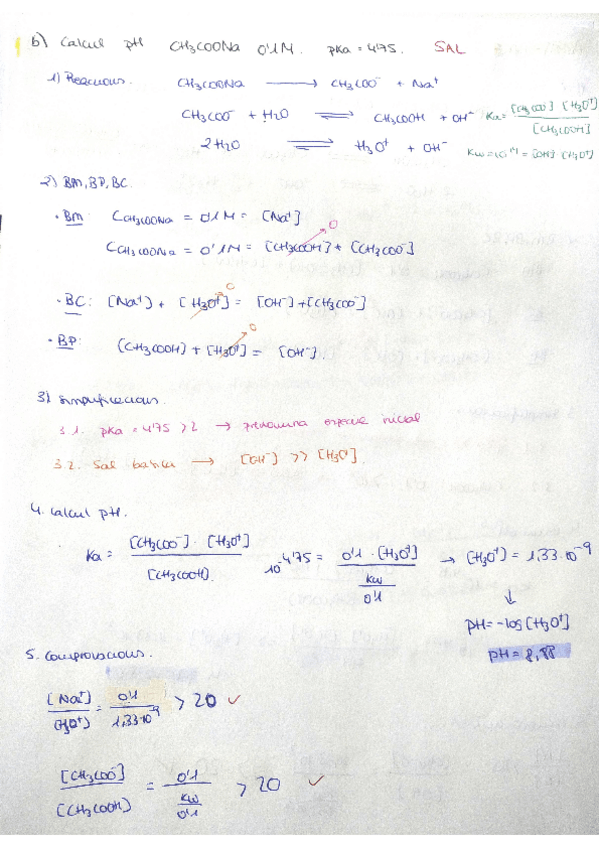 b) Calcul pH CH3COONa 0'1M. pKa = 4'75. SAL
1) Reaccions. CH3COONa ⟶ CH3COO⁻ + Na⁺
CH3COO⁻ + H2O ⇌ CH3COOH + OH⁻ Ka = [CH3COO⁻] [H3O⁺] / [CH3COOH]
2H2O ⇌ H3O⁺ + OH⁻ Kw = 10⁻¹⁴ = [OH⁻] [H3O⁺]
2) BM, BP, BC.
· BM: C CH3COONa = 0'1M = [Na⁺]
C CH3COONa = 0'1M = [CH3COOH] + [CH3COO⁻] 0
· BC: [Na⁺] + [H3O⁺] = [OH⁻] + [CH3COO⁻] 0
· BP: [CH3COOH] + [H3O⁺] = [OH⁻]. 0
3) Simplificacions.
3.1. pKa = 4'75 > 2 → predomina espècie inicial
3.2. Sal bàsica → [OH⁻] >> [H3O⁺]
4. Calcul pH.
Ka = [CH3COO⁻] · [H3O⁺] / [CH3COOH]. 10^-4'75 = 0'1 · [H3O⁺] / (Kw / 0'1) → [H3O⁺] = 1,33·10⁻⁹
↓
pH = -log [H3O⁺]
pH = 8,88
5. Comprovacions.
[Na⁺] / [H3O⁺] = 0'1 / 1,33·10⁻⁹ > 20 ✓
[CH3COO⁻] / [CH3COOH] = 0'1 / (Kw / 0'1) > 20 ✓